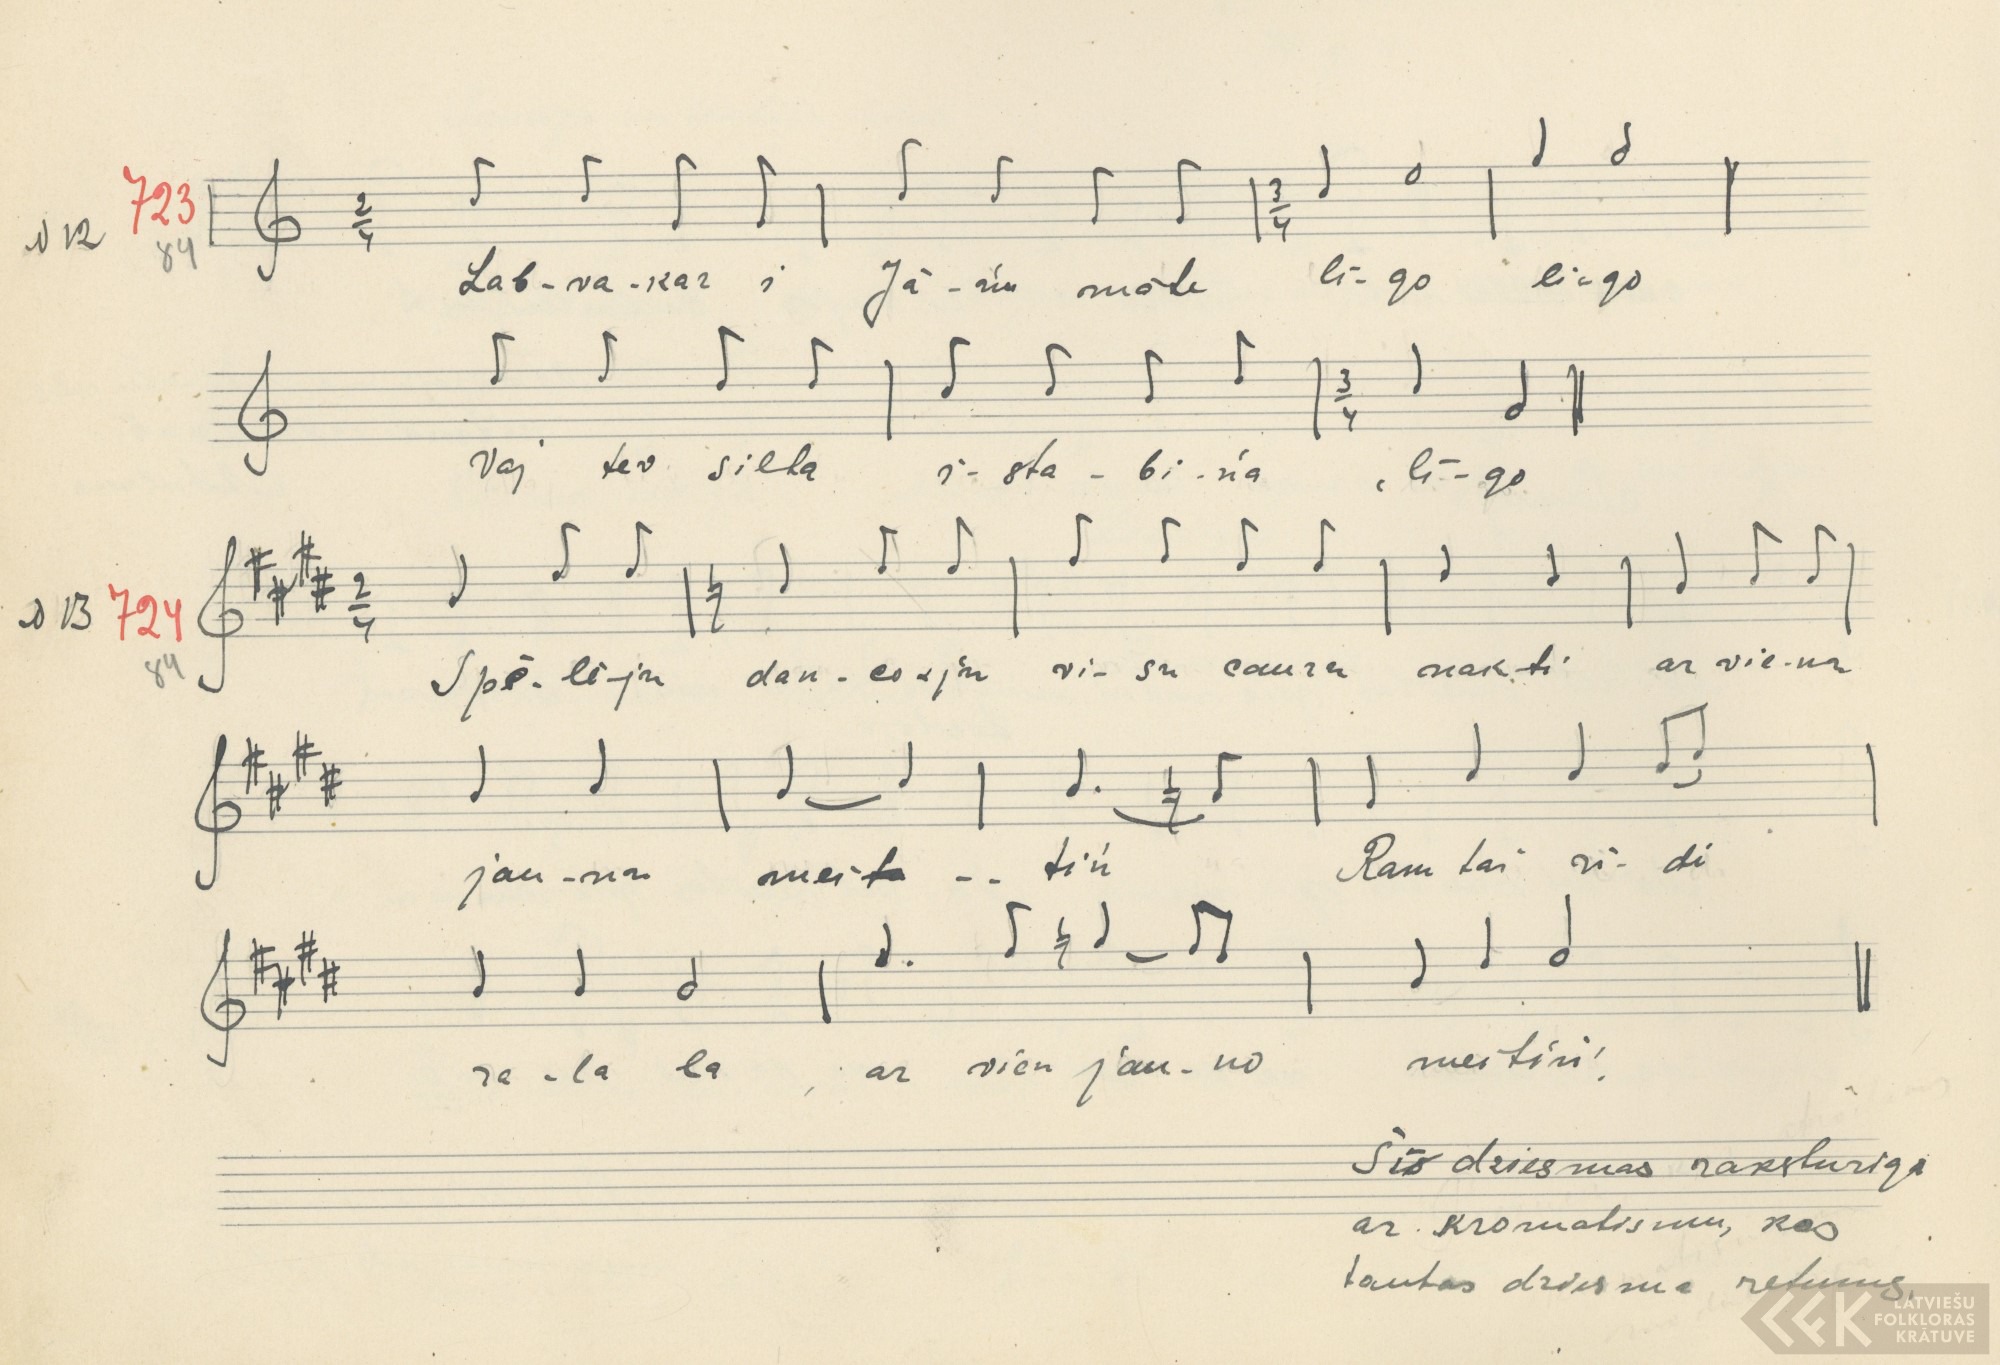 N 12 723
84
2/4 3/4
Lab-va-kar i Jā-ņu māte lī-go lī-go
3/4
Vaj tev silta i-sta-bi-ņa, lī-go
N 13 724
84
2/4
Spē-lē-ju dan-co-ju vi-su cauru nak-ti ar vie-nu
jau-nu meit--tiņ Ram tai rī-di
ra-la la, ar vien jau-no meitiņ!
Šīs dziesmas raksturīga
ar kromatismu, kas
tautas dziesmā retums.
LATVIEŠU
FOLKLORAS
KRĀTUVE